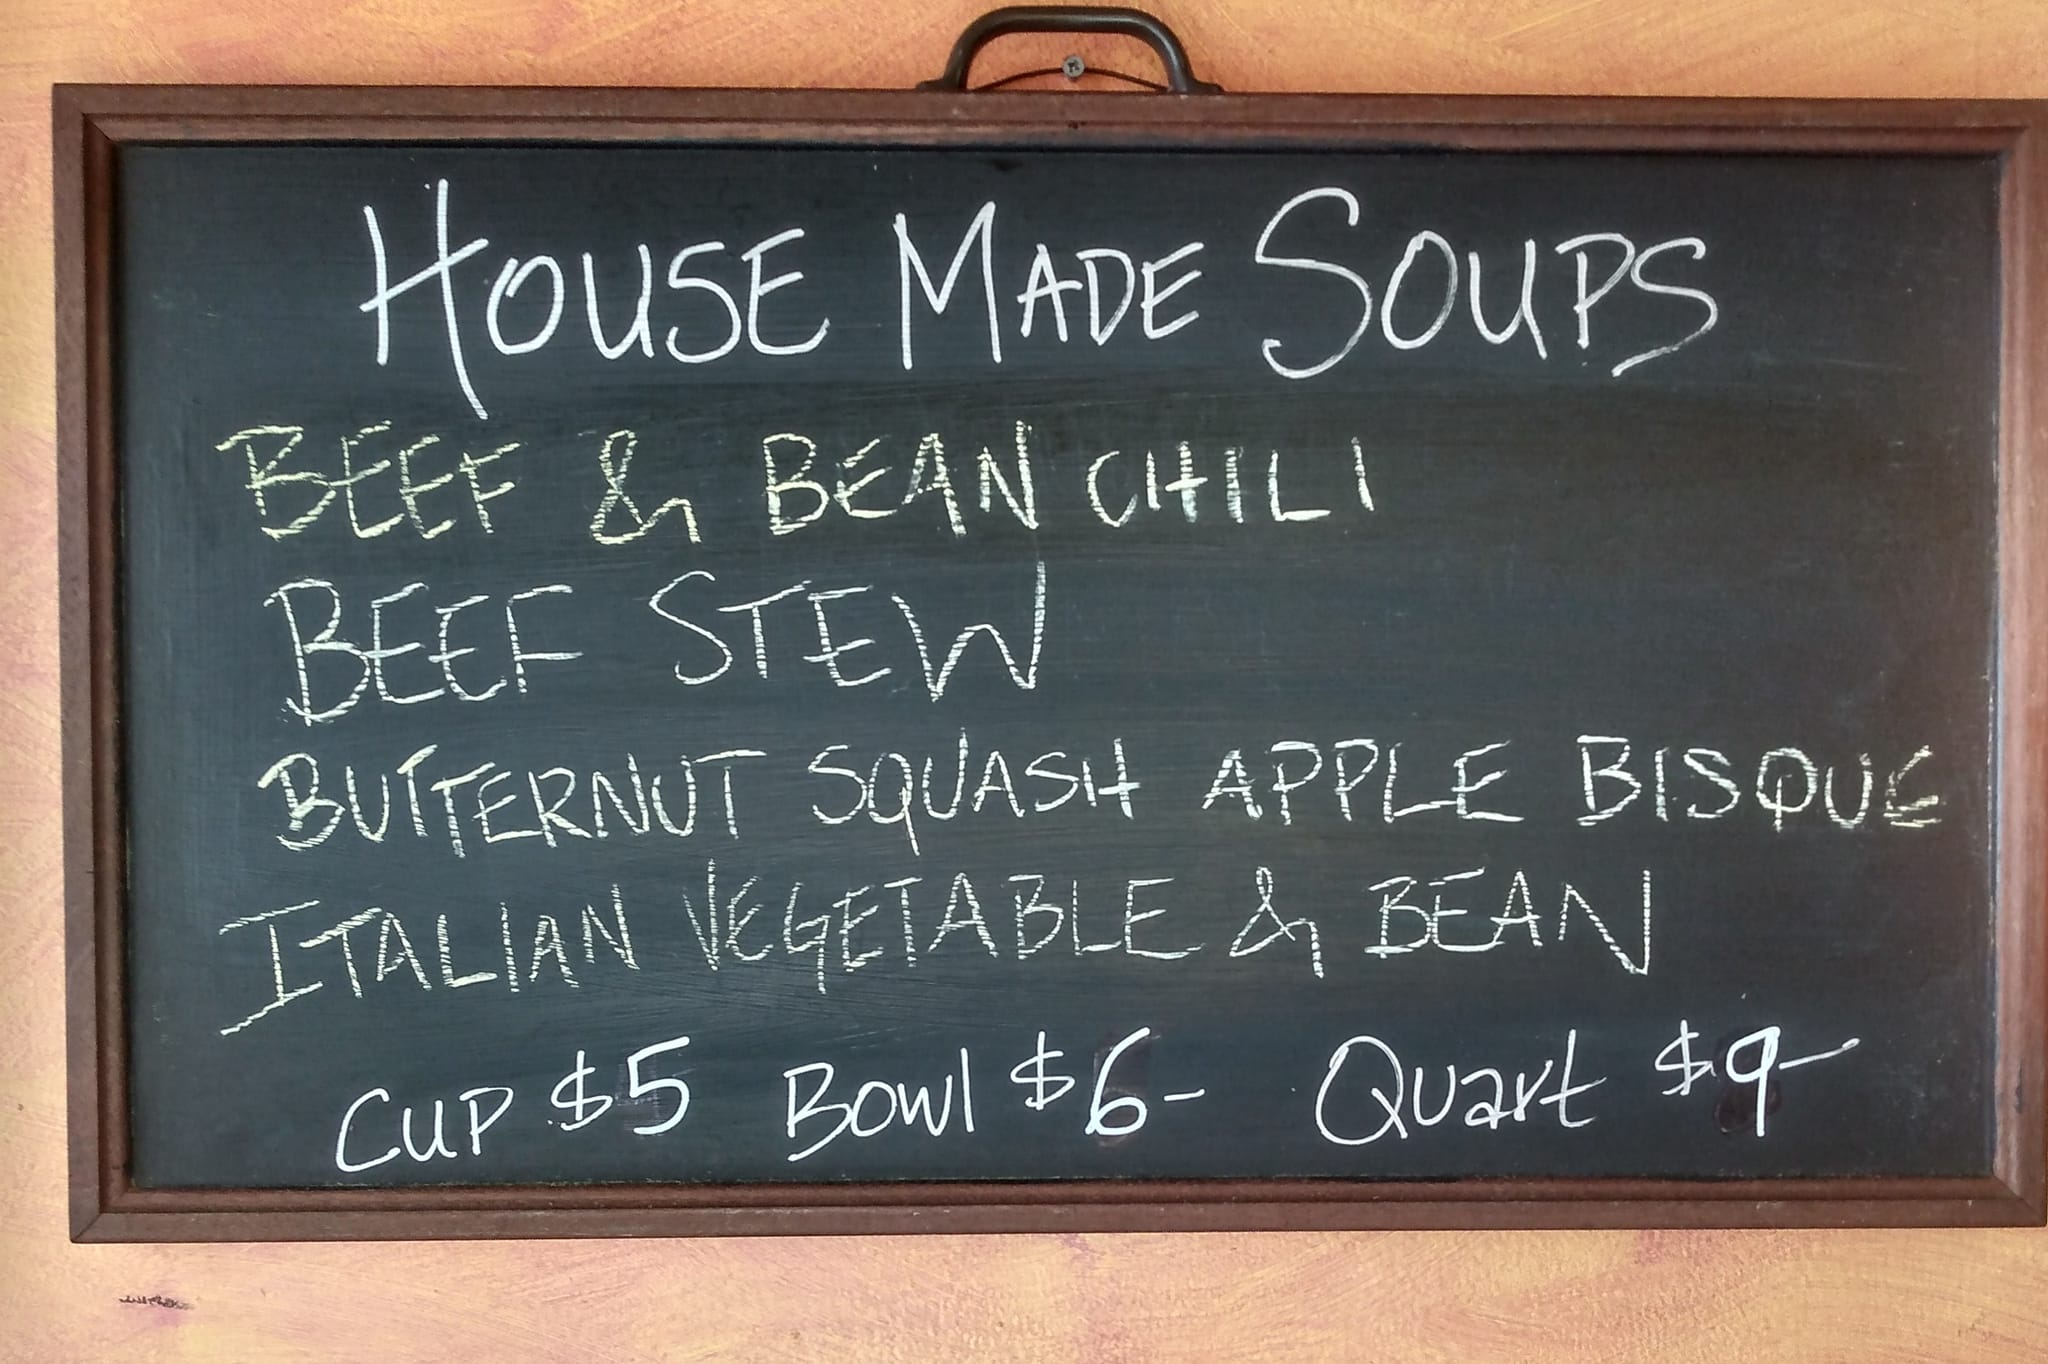 HOUSE MADE SOUPS
BEEF & BEAN CHILI
BEEF STEW
BUTTERNUT SQUASH APPLE BISQUE
ITALIAN VEGETABLE & BEAN
CUP $5 BOWl $6- QUart $9-